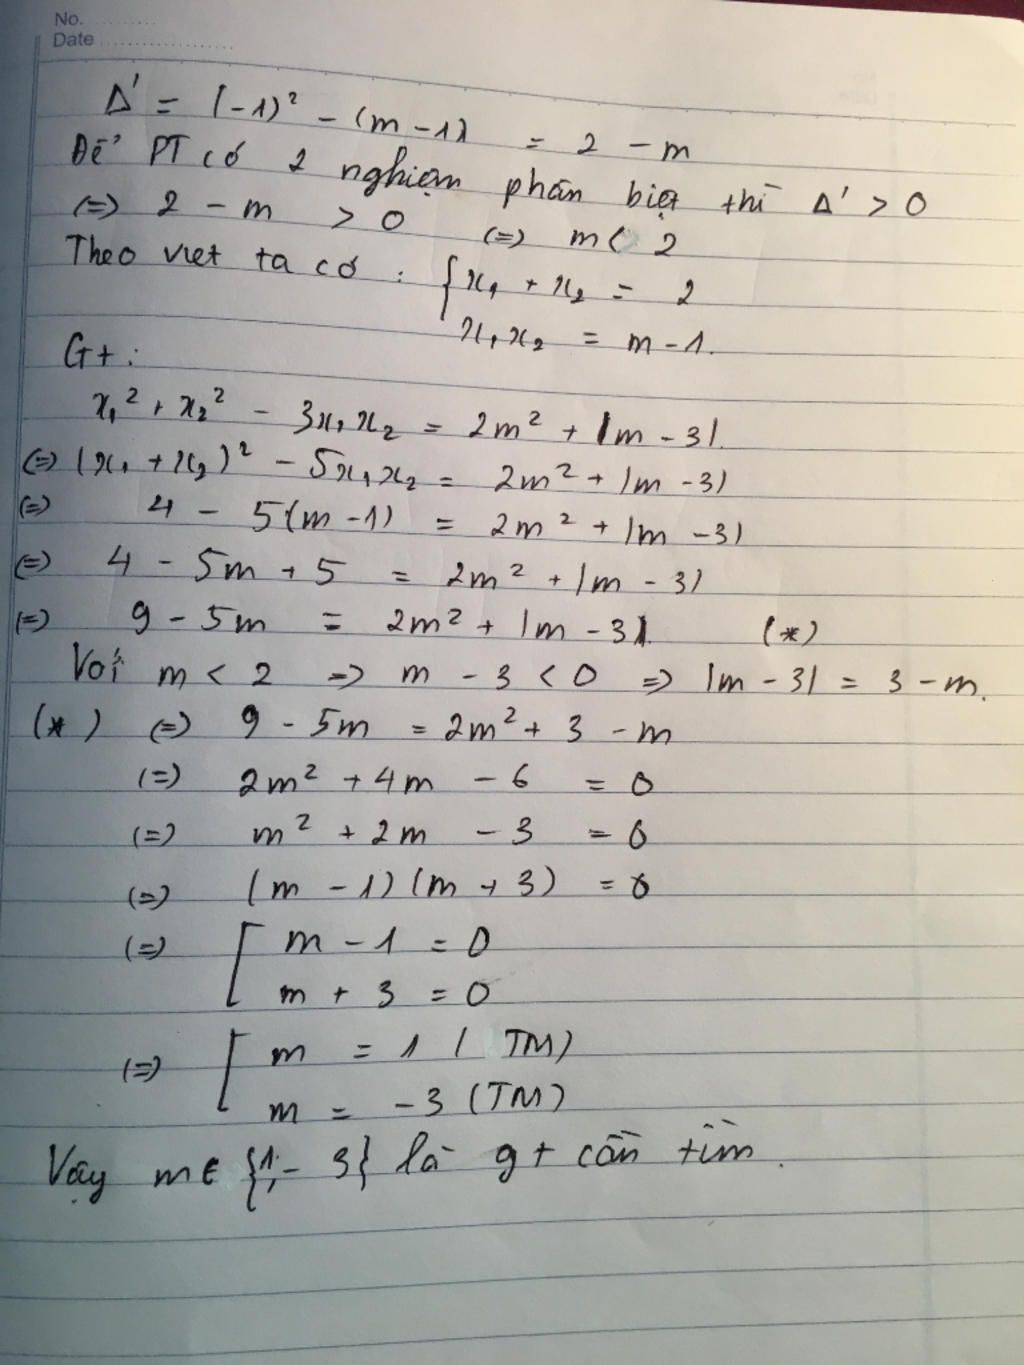 No. ...........
Date ......................
Δ' = (-1)² - (m - 1) = 2 - m
Để PT có 2 nghiệm phân biệt thì Δ' > 0
(=) 2 - m > 0 (=) m < 2
Theo viet ta có : { x₁ + x₂ = 2
x₁x₂ = m - 1.
Gt :
x₁² + x₂² - 3x₁x₂ = 2m² + |m - 3|.
(=) (x₁ + x₂)² - 5x₁x₂ = 2m² + |m - 3|
(=) 4 - 5(m - 1) = 2m² + |m - 3|
(=) 4 - 5m + 5 = 2m² + |m - 3|
(=) 9 - 5m = 2m² + |m - 3| (*)
Với m < 2 => m - 3 < 0 => |m - 3| = 3 - m.
(*) (=) 9 - 5m = 2m² + 3 - m
(=) 2m² + 4m - 6 = 0
(=) m² + 2m - 3 = 0
(=) (m - 1)(m + 3) = 0
(=) [ m - 1 = 0
m + 3 = 0
(=) [ m = 1 ( TM)
m = -3 (TM)
Vậy m ∈ {1; -3} là gt cần tìm.